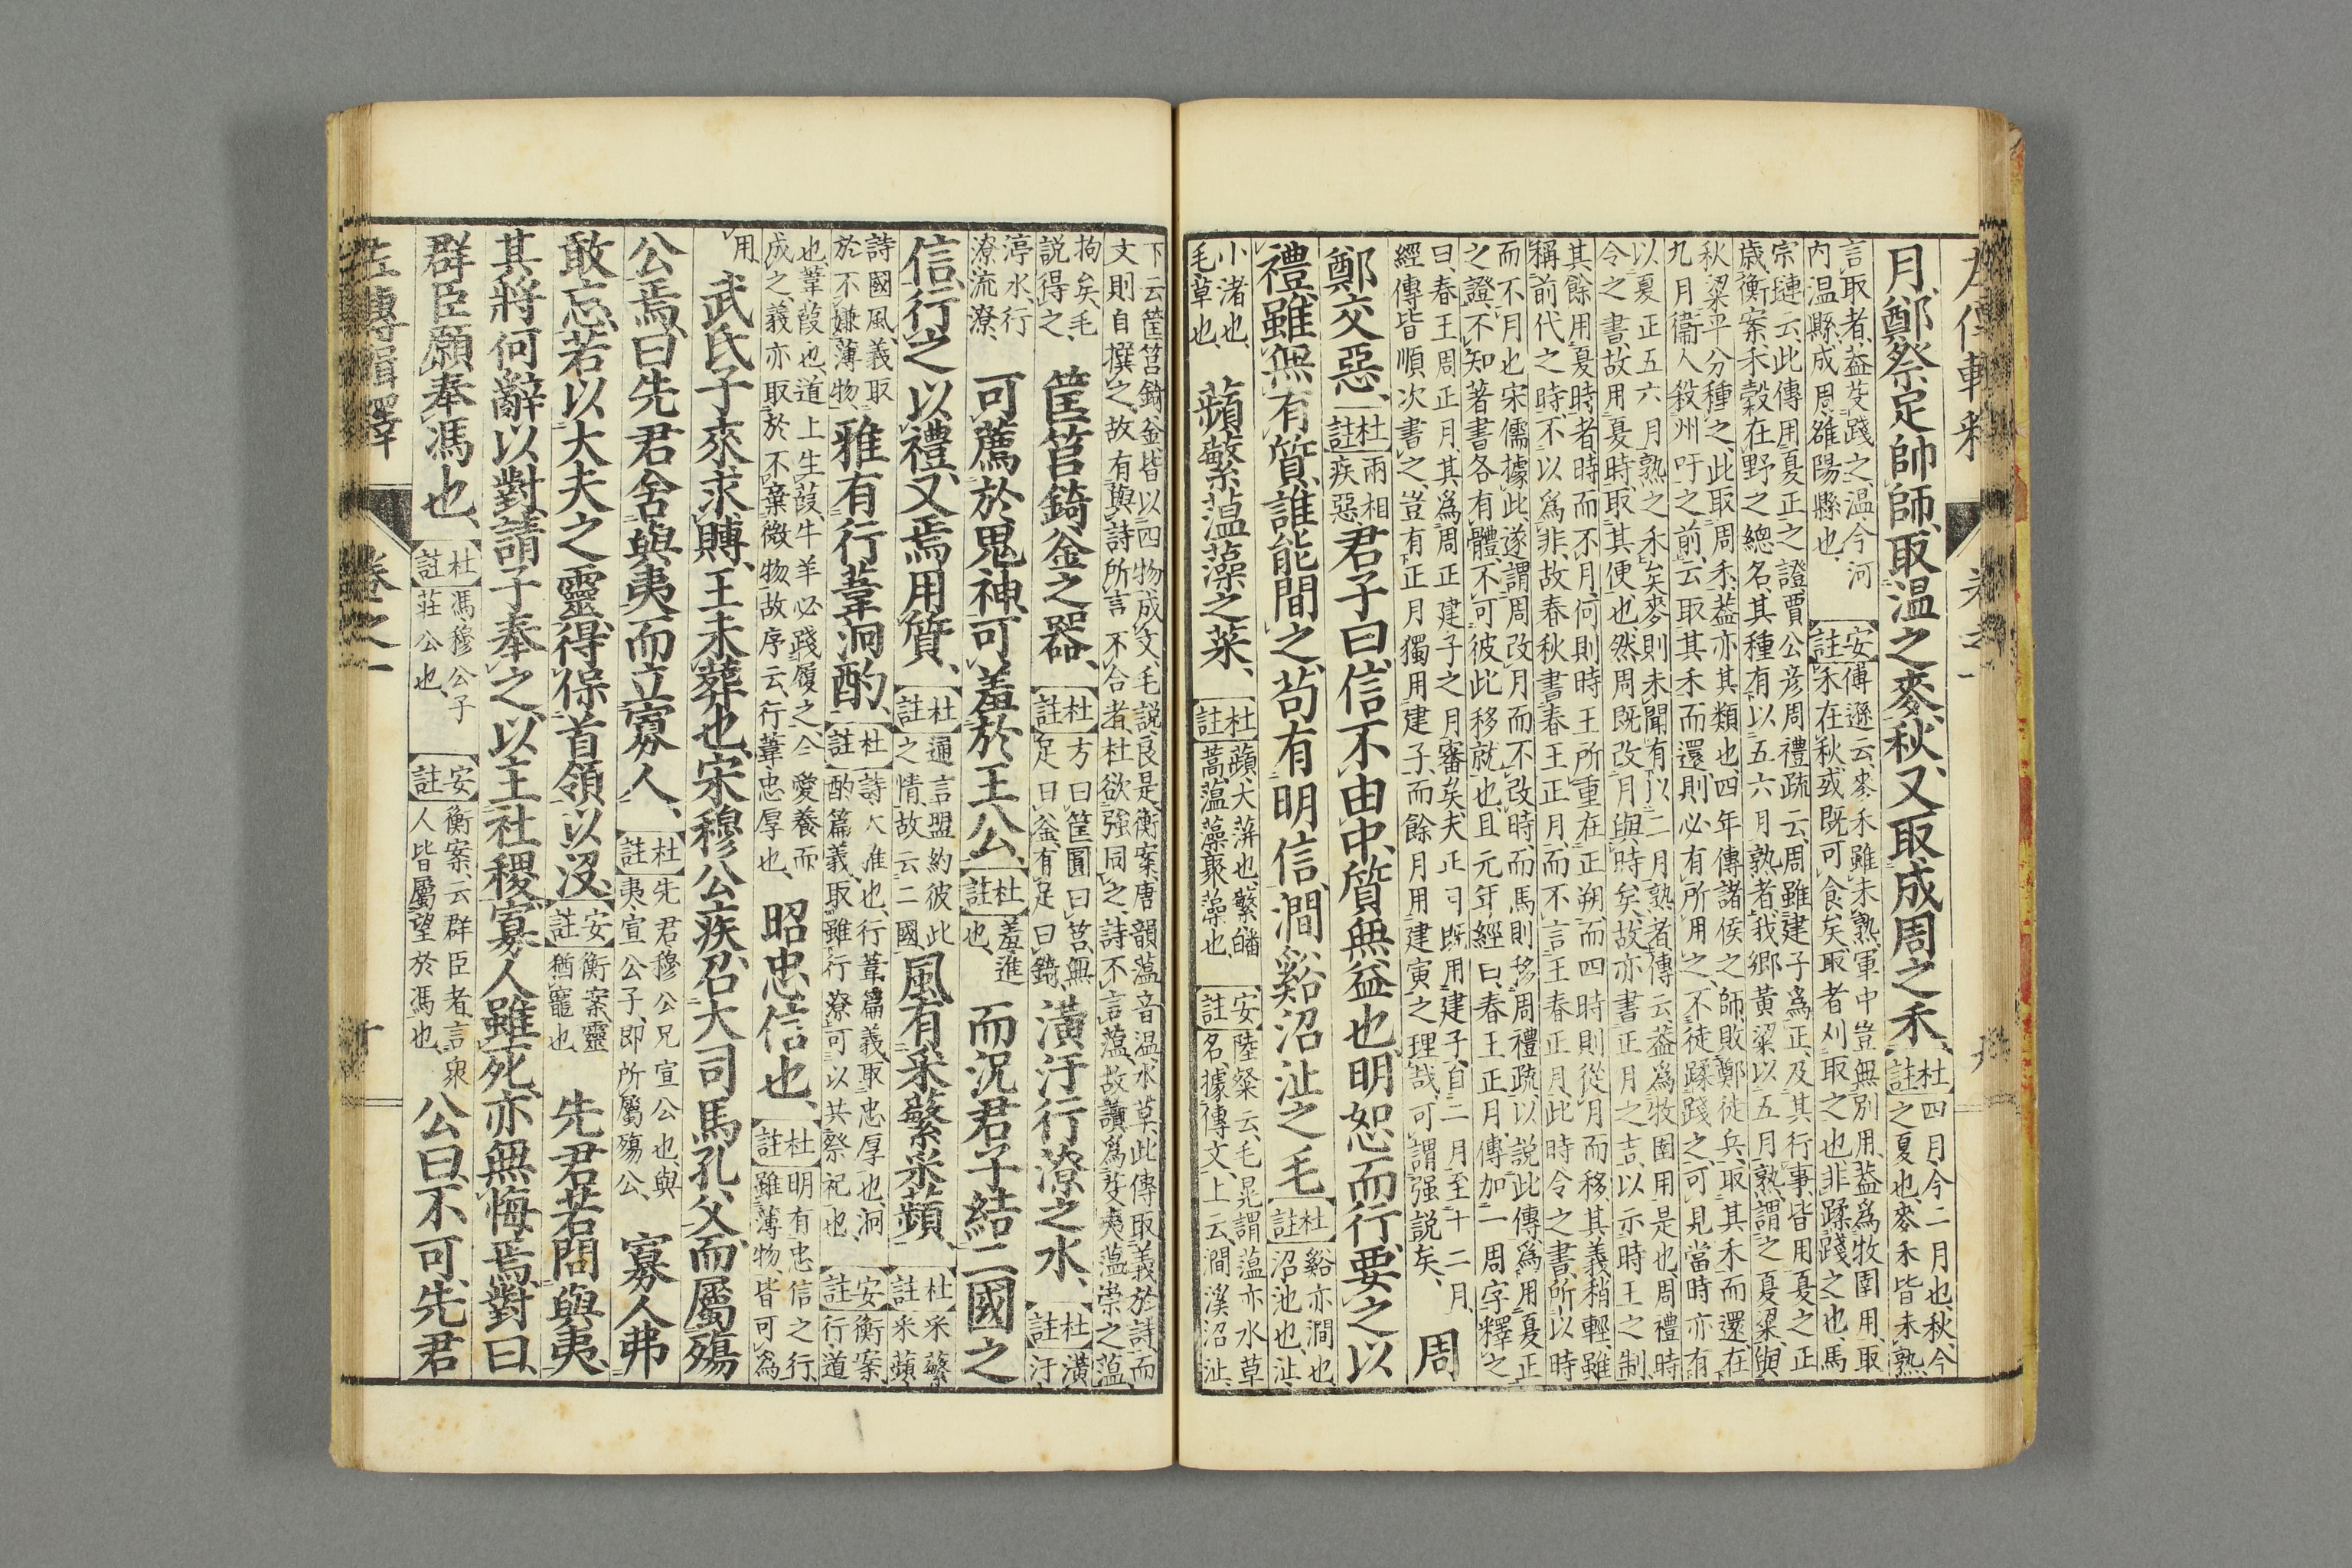 左傳輯釋 卷之一 九
月、鄭祭足帥師取温之麥、秋、又取成周之禾、【杜註】四月、今二月也、秋、今之夏也、麥禾皆未熟、
言取者、蓋芟踐之、温、今河内温縣、成周、雒陽縣也、【安註】傅遜云、麥禾雖未熟、軍中豈無別用、蓋爲牧圉用、取禾在秋、或既可食矣、取者刈取之也、非蹂踐之也、馬
宗璉云、此傳用夏正之證、賈公彦周禮疏云、周雖建子爲正、及其行事、皆用夏之正歳、衡案、禾、穀在野之總名、其種有以五六月熟者、我郷黄粱以五月熟、謂之夏粱、與
秋粱平分種之、此取周禾、蓋亦其類也、四年傳諸侯之師、敗鄭徒兵、取其禾而還、在九月衞人殺州吁之前、云取其禾而還、則必有所用之、不徒蹂踐之、可見當時亦有
以夏正五六月熟之禾矣、麥則未聞有以二月熟者、傳云、蓋爲牧圉用是也、周禮時令之書、故用夏時、取其便也、然周既改月與時矣、故亦書正月之吉、以示時王之制、
其餘用夏時者、時而不月、何則時王所重在正朔、而四時則從月而移、其義稍輕、雖稱前代之時、不以爲非、故春秋書春王正月、而不言王春正月、此時令之書、所以時
而不月也、宋儒據此、遂謂周改月而不改時、而馬則移周禮疏、以説此傳、爲用夏正之證、不知著書各有體、不可彼此移就也、且元年經曰、春王正月、傳加一周字釋之
曰、春王周正月、其爲周正建子之月審矣、夫正月既用建子、自二月至十二月、經傳皆順次書之、豈有正月獨用建子、而餘月用建寅之理哉、可謂强説矣、周
鄭交惡、【杜註】兩相疾惡 君子曰、信不由中、質無益也、明恕而行、要之以
禮、雖無有質、誰能間之、苟有明信、澗谿沼沚之毛【杜註】谿亦澗也、沼、池也、沚、
小渚也、毛、草也、蘋蘩薀藻之菜、【杜註】蘋、大萍也、蘩、皤蒿、薀藻、聚藻也、【安註】陸粲云、毛晃謂薀亦水草名、據傳文、上云澗溪沼沚、
下云筐筥錡釜、皆以四物成文、毛説良是、衡案、唐韻薀音温、水草、此傳取義於詩、而文則自撰之、故有與詩所言不合者、杜欲强同之、詩不言薀、故讀爲芟夷薀崇之薀、
拘矣、毛説得之、筐筥錡釜之器、【杜註】方曰筐、圓曰筥、無足曰釜、有足曰錡、潢汙行潦之水、【杜註】潢汙、
停水、行潦、流潦、可薦於鬼神、可羞於王公、【杜註】羞、進也、而況君子結二國之
信、行之以禮、又焉用質、【杜註】通言盟約彼此之情、故云二國、風有采蘩采蘋、【杜註】采蘩采蘋、
詩國風、義取於不嫌薄物、雅有行葦泂酌、【杜註】詩大雅也、行葦篇、義取忠厚也、泂酌篇、義取雖行潦可以共祭祀也、【安註】衡案、行、道
也、葦、葭也、道上生葭、牛羊必踐履之、今愛養而成之、義亦取於不棄微物、故序云、行葦、忠厚也、昭忠信也、【杜註】明有忠信之行、雖薄物、皆可爲
用、武氏子來求賻、王未葬也、宋穆公疾、召大司馬孔父、而屬殤
公焉、曰先君舍與夷而立寡人、【杜註】先君、穆公兄宣公也、與夷、宣公子、即所屬殤公、寡人弗
敢忘、若以大夫之靈、得保首領以没、【安註】衡案、靈猶寵也、先君若問與夷、
其將何辭以對、請子奉之、以主社稷、寡人雖死、亦無悔焉、對曰、
群臣願奉馮也、【杜註】馮、穆公子莊公也、【安註】衡案、云群臣者、言衆人皆屬望於馮也、公曰、不可、先君
左傳輯釋 卷之一 十